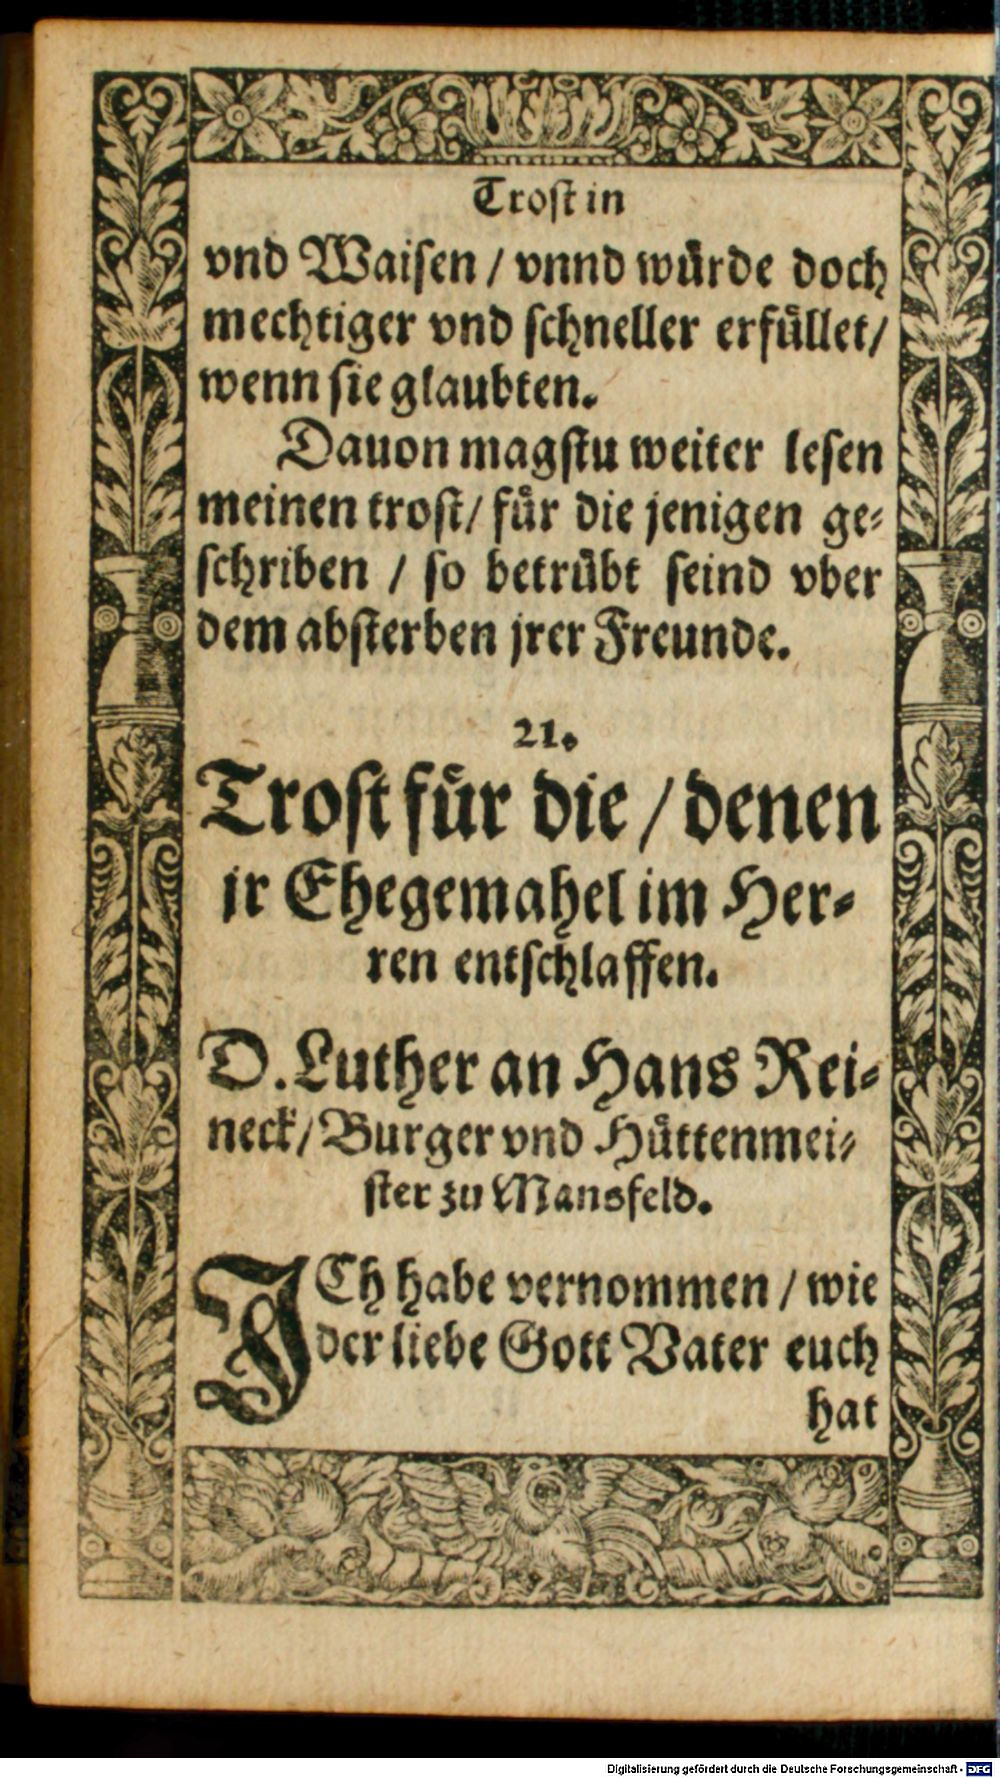 Trost in
vnd Waisen / vnnd wuͤrde doch
mechtiger vnd schneller erfuͤllet/
wenn sie glaubten.
Dauon magstu weiter lesen
meinen trost/ fuͤr die jenigen ge⸗
schriben / so betruͤbt seind vber
dem absterben jrer Freunde.
21.
Trost fuͤr die / denen
jr Ehegemahel im Her⸗
ren entschlaffen.
D. Luther an Hans Rei⸗
neck/ Burger vnd Huͤttenmei⸗
ster zu Mansfeld.
ICh habe vernommen / wie
der liebe Gott Vater euch
hat
Digitalisierung gefördert durch die Deutsche Forschungsgemeinschaft - DFG